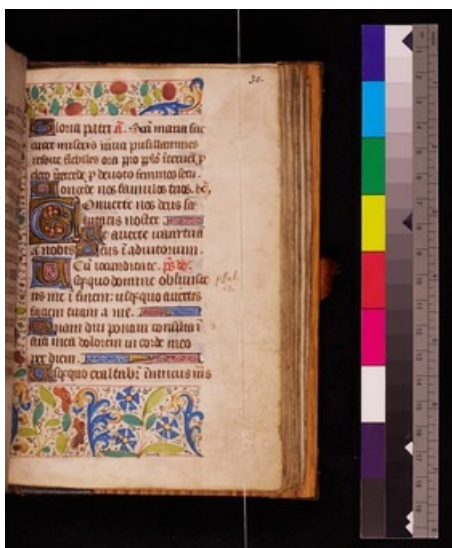 30.
Gloria patri a͞. S͞ca maria suc
curre miseris iuva pusillanimes
refove flebiles ora pro p͞p͞lo
p devoto femineo sexu.
Concede nos famulos tuos. &c,
Converte nos deus sa
lutaris noster
Et averte iram tua
a nobis Deus i͞ adiutorium.
Cu͞ iocunditate. p͞s
Usquequo domine oblivisce
ris me i͞ finem: usquequo avertis
faciem tuam a me.
Quam diu ponam consilia i͞
a͞i͞a mea dolorem in corde meo
per diem.
Usquequo exaltabit͞ inimicus m͞s